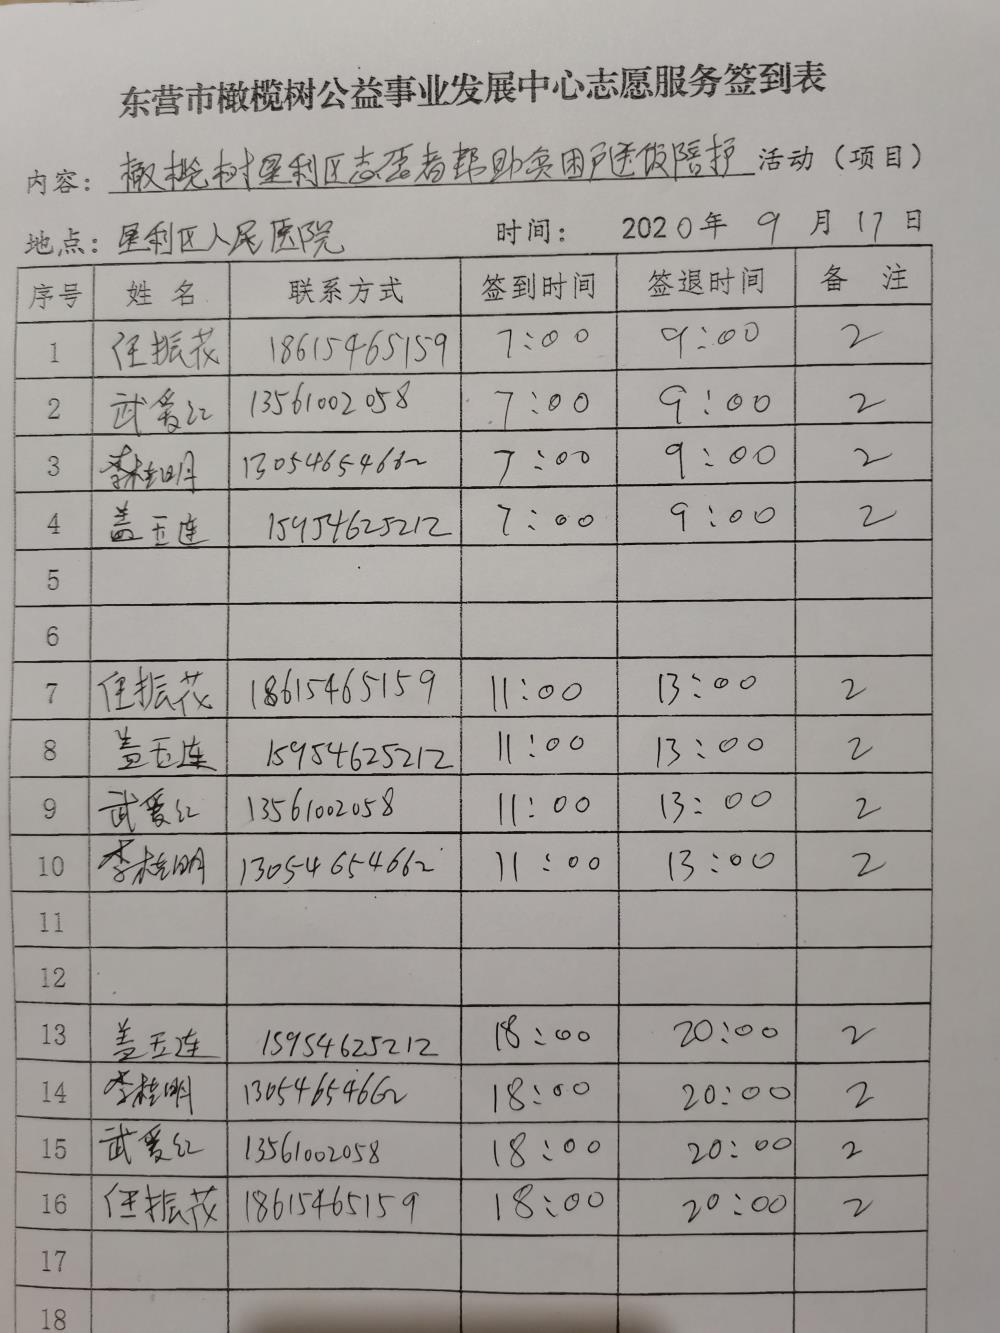 东营市橄榄树公益事业发展中心志愿服务签到表
内容：橄榄树垦利区志愿者帮助贫困户送饭陪护活动（项目）
地点：垦利区人民医院 时间： 2020年 9 月 17日
序号 姓名 联系方式 签到时间 签退时间 备 注
1 任振花 18615465159 7:00 9:00 2
2 武爱红 13561002058 7:00 9:00 2
3 李桂明 13054654662 7:00 9:00 2
4 盖玉连 15954625212 7:00 9:00 2
5
6
7 任振花 18615465159 11:00 13:00 2
8 盖玉连 15954625212 11:00 13:00 2
9 武爱红 13561002058 11:00 13:00 2
10 李桂明 13054654662 11:00 13:00 2
11
12
13 盖玉连 15954625212 18:00 20:00 2
14 李桂明 13054654662 18:00 20:00 2
15 武爱红 13561002058 18:00 20:00 2
16 任振花 18615465159 18:00 20:00 2
17
18